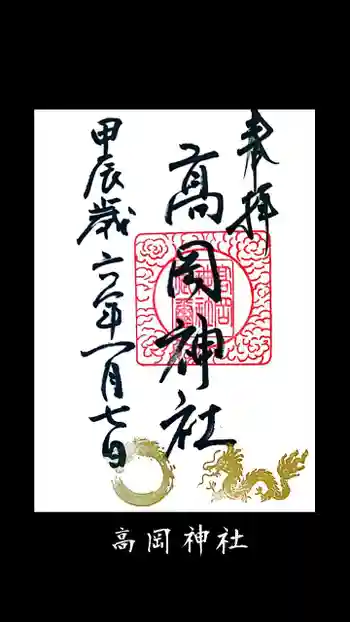 奉拝
髙岡神社
甲辰歳六年一月七日
高岡神社